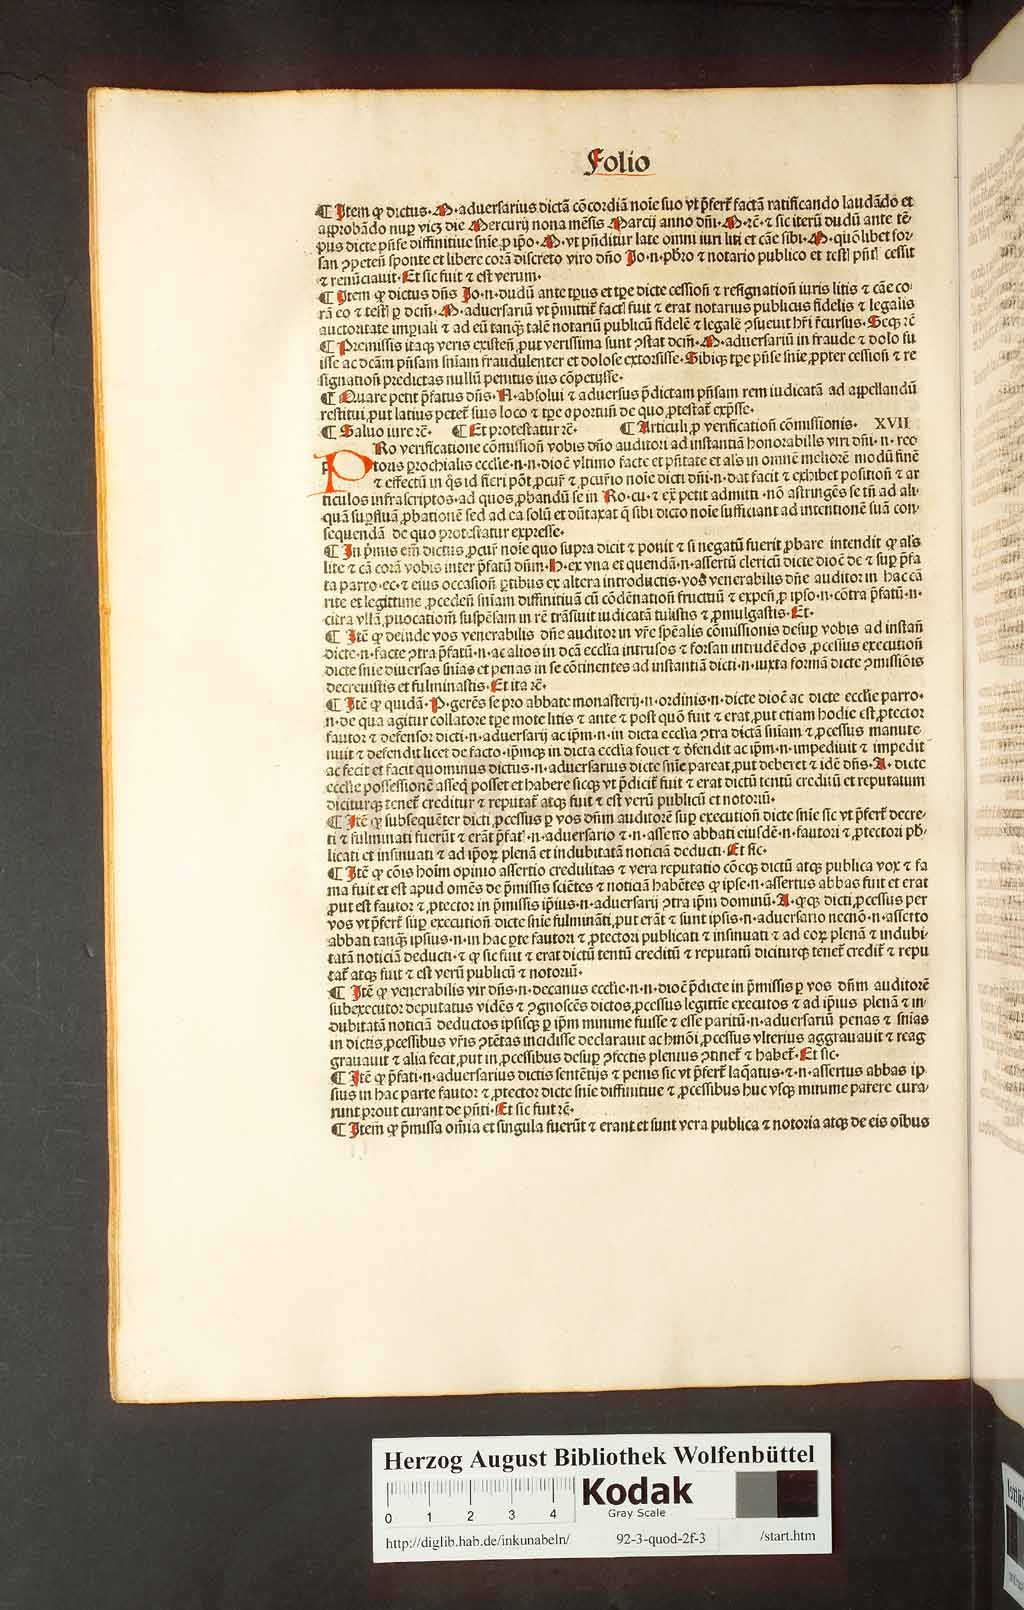 Folio
¶ Item ꝙ dictus·M·aduersarius dictã cõcordiã noie suo vt p̃fert̃ factã ratificando laudãdo et
approbãdo nuꝑ vicꝫ die Mercurij nona mẽsis Marcij anno dñi·M·ꝛc̃·⁊ sic iterũ dudũ ante tẽ-
pus dicte pñse diffinitiue snĩe ꝓ ip̃o·M·vt pñditur late omni iuri liti et cãe sibi·M·quõlibet for-
san ꝯpeteñ sponte et libere corã discreto viro dño Jo·n·pb̃ro ⁊ notario publico et testꝭ pñtꝭ cessit
⁊ renũciauit·Et sic fuit ⁊ est verum·
¶ Item ꝙ dictus dñs Jo·n·dudũ ante tp̃us et tp̃e dicte cessioñ ⁊ resignatioñ iuris litis ⁊ cãe co-
rã eo ⁊ testꝭ ꝑ dcm̃·M·aduersariũ vt p̃mittit̃ factꝭ fuit ⁊ erat notarius publicus fidelis ⁊ legalis
auctoritate imꝑiali ⁊ ad eũ tanqꝫ talẽ notariũ publicũ fidelẽ ⁊ legalẽ ꝯsueuit hr̃i r̃cursus·Secꝫ ꝛc̃
¶ Premissis itaqꝫ veris existeñ ꝓut verissima sunt ꝯstat dcm̃·M·aduersariũ in fraude ⁊ dolo fu
isse ac dcãm pñsam sniam fraudulenter et dolose extorsisse·Sibiqꝫ tp̃e pñse snĩe ꝓpter cessioñ ⁊ re
signatioñ predictas nullũ penitus ius cõpetijsse·
¶ Quare petit p̃fatus dñs·N·absolui ⁊ aduersus p̃dictam pñsam rem iudicatã ad appellandũ
restitui ꝓut latius petet̃ suis loco ⁊ tp̃e oportuñ de quo ꝓtestat̃ exp̃sse·
¶ Saluo iure ꝛc̃· ¶ Et protestatur ꝛc̃· ¶ Articuli ꝓ verificatioñ cõmissionis· XVII
PRo verificatione cõmissioñ vobis dño auditori ad instantiã honorabilis viri dñi·n·rec
toris ꝑrochialis ecclie·n·n·dioc̃ vltimo facte et pñtate et aĩs in omnẽ meliorẽ modũ finẽ
⁊ effectũ in qͥs id fieri põt ꝓcur̃ ⁊ ꝓcuŕio noie dicti dñi·n·dat facit ⁊ exhibet positioñ ⁊ ar
ticulos infrascriptos·ad quos ꝓbandũ se in Ro·cu·⁊ ex̃ petit admitti·nõ astringẽs se tñ ad ali-
quã suꝑfluã ꝓbationẽ sed ad ea solũ et dũtaxat q̃ sibi dicto noie sufficiant ad intentionẽ suã con-
sequendã de quo protestatur expresse·
¶ In p̃mis em̃ dictus ꝓcur̃ noie quo supra dicit ⁊ ponit ⁊ si negatũ fuerit ꝓbare intendit ꝙ aĩs
lite ⁊ cã corã vobis inter p̃fatũ dñm·H·ex vna et quendã·n·assertũ clericũ dicte dioc̃ de ⁊ suꝑ p̃fa
ta parro·ec·⁊ eius occasioñ ꝑtibus ex altera introductis·vos venerabilis dñe auditor in hac cã
rite et legittime ꝓcedeñ sniam diffinitiuã cũ cõdẽnatioñ fructuũ ⁊ expeñ ꝓ ipso·n·cõtra p̃fatũ·n·
citra vllã ꝓuocatioñ suspẽsam in rẽ trãsiuit iudicatã tulistis ⁊ ꝓmulgastis·Et·
¶ Itẽ ꝙ deinde vos venerabilis dñe auditor in vr̃e sp̃ealis cõmissionis desuꝑ vobis ad instañ
dicte·n·facte ꝯtra p̃fatũ·n·ac alios in dcã ecclia intrusos ⁊ forsan intrudẽdos ꝓcessus executioñ
dicte snĩe diuersas snias et penas in se cõtinentes ad instantiã dicti·n·iuxta formã dicte ꝯmissiõis
decreuistis et fulminastis·Et ita ꝛc̃·
¶ Itẽ ꝙ quidã·P·gerẽs se pro abbate monasterij·n·ordinis·n·dicte dioc̃ ac dicte ecclie parro·
n·de qua agitur collatore tp̃e mote litis ⁊ ante ⁊ post quõ fuit ⁊ erat ꝓut etiam hodie est ꝓtector
fautor ⁊ defensor dicti·n·aduersarij ac ip̃m·n·in dicta ecclia ꝯtra dictã sniam ⁊ ꝓcessus manute
nuit ⁊ defendit licet de facto·ip̃mqꝫ in dicta ecclia fouet ⁊ d̃fendit ac ip̃m·n·impediuit ⁊ impedit
ac fecit et facit quominus dictus·n·aduersarius dicte snĩe pareat ꝓut deberet ⁊ idẽ dñs·A·dicte
ecclie possessionẽ asseq̃ posset et habere sicqꝫ vt p̃dicit̃ fuit ⁊ erat dictũ tentũ creditũ et reputatum
diciturqꝫ tenet̃ creditur ⁊ reputat̃ atqꝫ fuit ⁊ est verũ publicũ et notoriũ·
¶ Itẽ ꝙ subsequẽter dicti ꝓcessus ꝑ vos dñm auditorẽ suꝑ executioñ dicte snĩe sic vt p̃fert̃ decre-
ti ⁊ fulminati fuerũt ⁊ erãt p̃fat̃·n·aduersario ⁊·n·asserto abbati eiusdẽ·n·fautori ⁊ ꝓtectori pb̃-
licati et insinuati ⁊ ad ip̃oꝝ plenã et indubitatã noticiã deducti·Et sic·
¶ Itẽ ꝙ cõis hoĩm opinio assertio credulitas ⁊ vera reputatio cõcqꝫ dictũ atqꝫ publica vox ⁊ fa
ma fuit et est apud omẽs de p̃missis sciẽtes ⁊ noticiã habẽtes ꝙ ipse·n·assertus abbas fuit et erat
ꝓut est fautor ⁊ ꝓtector in p̃missis ip̃ius·n·aduersarij ꝯtra ip̃m dominũ·A·qꝙ dicti ꝓcessus per
vos vt p̃fert̃ suꝑ executioñ dicte snĩe fulminãti ꝓut erãt ⁊ sunt ipsis·n·aduersario necnõ·n·asserto
abbati tanqꝫ ipsius·n·in hac ꝑte fautori ⁊ ꝓtectori publicati ⁊ insinuati ⁊ ad eoꝝ plenã ⁊ indubi-
tatã noticiã deducti·⁊ ꝙ sic fuit ⁊ erat dictũ tentũ creditũ ⁊ reputatũ diciturqꝫ tenet̃ credit̃ ⁊ repu
tat̃ atqꝫ fuit ⁊ est verũ publicũ ⁊ notoriũ·
¶ Itẽ ꝙ venerabilis vir dñs·n·decanus ecclie·n·n·dioc̃ p̃dicte in p̃missis ꝑ vos dñm auditorẽ
subexecutor deputatus vidẽs ⁊ ꝯgnoscẽs dictos ꝓcessus legitĩe executos ⁊ ad ip̃ius plenã ⁊ in-
dubitatã noticiã deductos ipsisqꝫ ꝑ ip̃m minime fuisse ⁊ esse paritũ·n·aduersariũ penas ⁊ snias
in dictis ꝓcessibus vr̃is ꝯtẽtas incidisse declarauit ac hm̃õi ꝓcessus vlterius aggrauauit ⁊ reag
grauauit ⁊ alia fecit ꝓut in ꝓcessibus desuꝑ ꝯfectis plenius ꝯtinet̃ ⁊ habet̃·Et sic·
¶ Itẽ ꝙ p̃fati·n·aduersarius dictis sentẽtijs ⁊ penis sic vt p̃fert̃ laq̃atus·⁊·n·assertus abbas ip
sius in hac parte fautor ⁊ ꝓtector dicte snĩe diffinitiue ⁊ ꝓcessibus huc vsqꝫ minime parere cura-
runt prout curant de pñti·Et sic fuit ꝛc̃·
¶ Item ꝙ p̃missa om̃ia et singula fuerũt ⁊ erant et sunt vera publica ⁊ notoria atqꝫ de eis oĩbus
Herzog August Bibliothek Wolfenbüttel
0 1 2 3 4
Kodak
Gray Scale
http://diglib.hab.de/inkunabeln/ 92-3-quod-2f-3 /start.htm